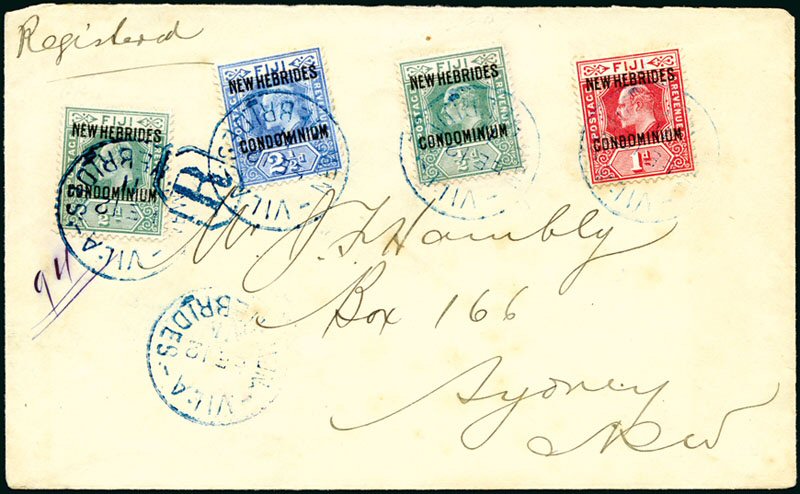 Registered
FIJI
NEW HEBRIDES
CONDOMINIUM
POSTAGE
REVENUE
FIJI
NEW HEBRIDES
CONDOMINIUM
POSTAGE
REVENUE
2½d
FIJI
NEW HEBRIDES
CONDOMINIUM
POSTAGE
REVENUE
½d
FIJI
NEW HEBRIDES
CONDOMINIUM
POSTAGE
REVENUE
1d
R
VILA
94
W. J. Hambly
Box 166
Sydney
NSW
VILA
HEBRIDES